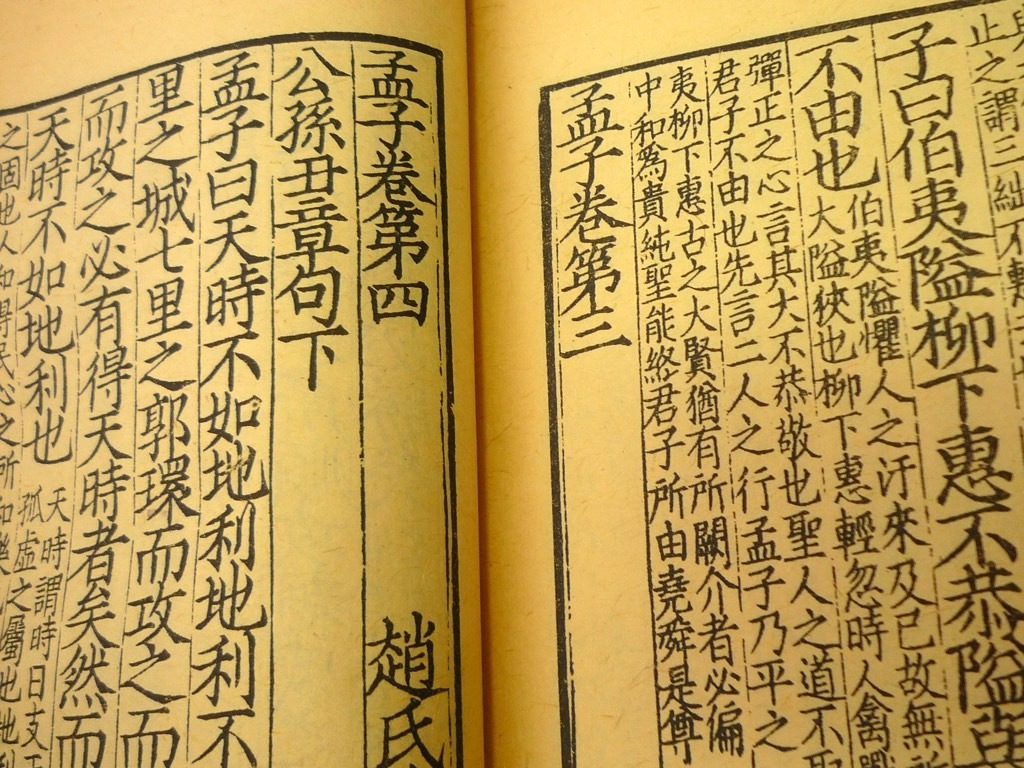 止之謂三絀不
子曰伯夷隘柳下惠不恭隘與
不由也 伯夷隘懼人之汙來及己故無所
大隘狹也柳下惠輕忽時人禽獸
彈正之心言其大不恭敬也聖人之道不取
君子不由也先言二人之行孟子乃平之
夷柳下惠古之大賢猶有所闕介者必偏
中和爲貴純聖能終君子所由堯舜是尊
孟子卷第三
孟子卷第四 趙氏
公孫丑章句下
孟子曰天時不如地利地利不
里之城七里之郭環而攻之而
而攻之必有得天時者矣然而
天時不如地利也 天時謂時日支
孤虛之屬地地利
之固也人和得民心之所和樂